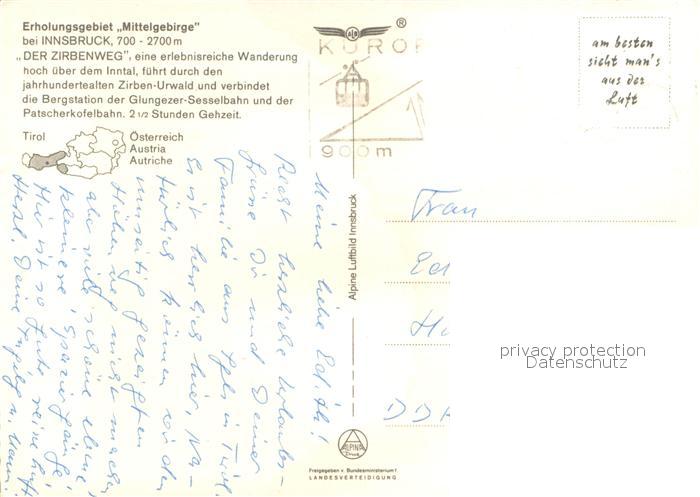 Erholungsgebiet „Mittelgebirge"
bei INNSBRUCK, 700 - 2700 m
„DER ZIRBENWEG", eine erlebnisreiche Wanderung
hoch über dem Inntal, führt durch den
jahrhundertealten Zirben-Urwald und verbindet
die Bergstation der Glungezer-Sesselbahn und der
Patscherkofelbahn. 2 1/2 Stunden Gehzeit.
Tirol
Österreich
Austria
Autriche
®
KUROR
900m
am besten
sieht man's
aus der
Luft
Meine liebe Edith!
Recht herzliche Urlaubs-
grüsse Dir und Deiner
Familie aus Igls in Tirol.
Es ist herrlich hier, Na-
türlich können wir den
umseitig gezeigten
Höhenweg nicht machen
aber viele schöne ebene
kleinere Spaziergänge
Hier ist so gute reine Luft
Herzl. Deine
Alpine Luftbild Innsbruck
Frau
Ed
Ha
DDR
privacy protection
Datenschutz
ALPINA
Druck
Freigegeben v. Bundesministerium f.
LANDESVERTEIDIGUNG